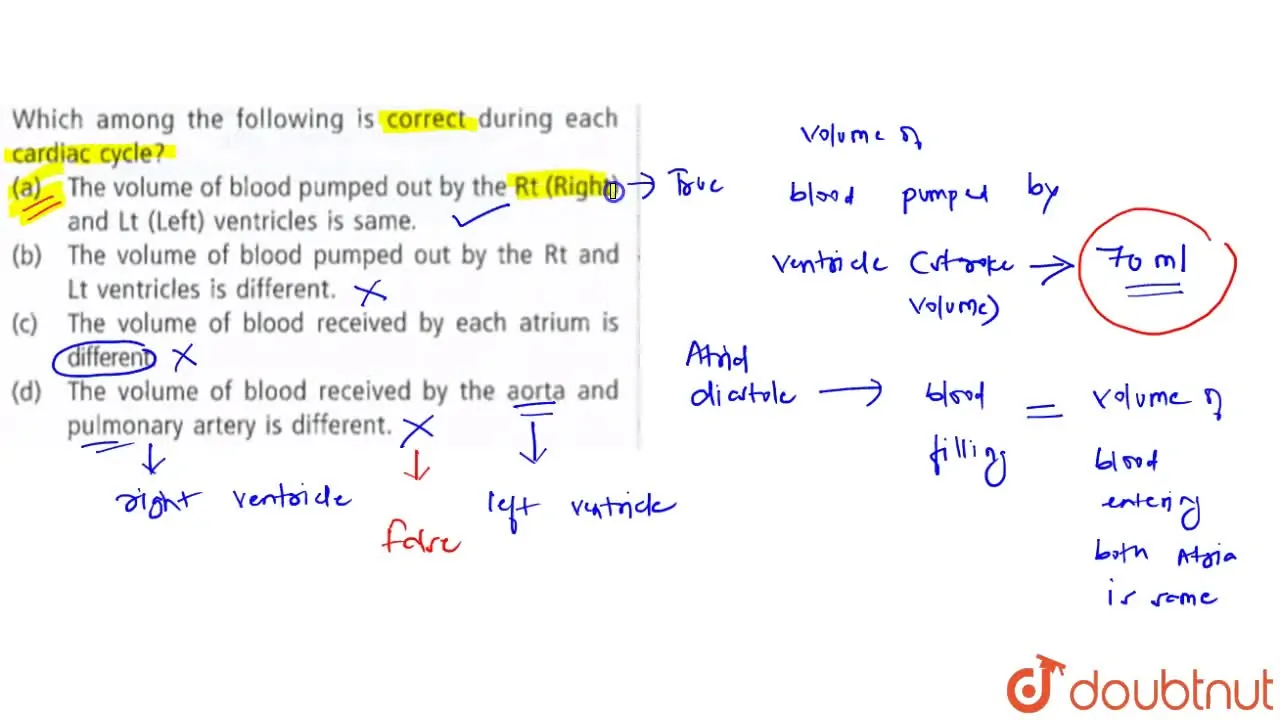 Which among the following is correct during each
cardiac cycle?
(a) The volume of blood pumped out by the Rt (Right)
and Lt (Left) ventricles is same.
(b) The volume of blood pumped out by the Rt and
Lt ventricles is different.
(c) The volume of blood received by each atrium is
different
(d) The volume of blood received by the aorta and
pulmonary artery is different.
right ventricle
false
left ventricle
True
volume of
blood pumped by
ventricle (stroke
volume)
70 ml
Atrial
diastole
blood
filling
=
volume of
blood
entering
both Atria
is same
doubtnut